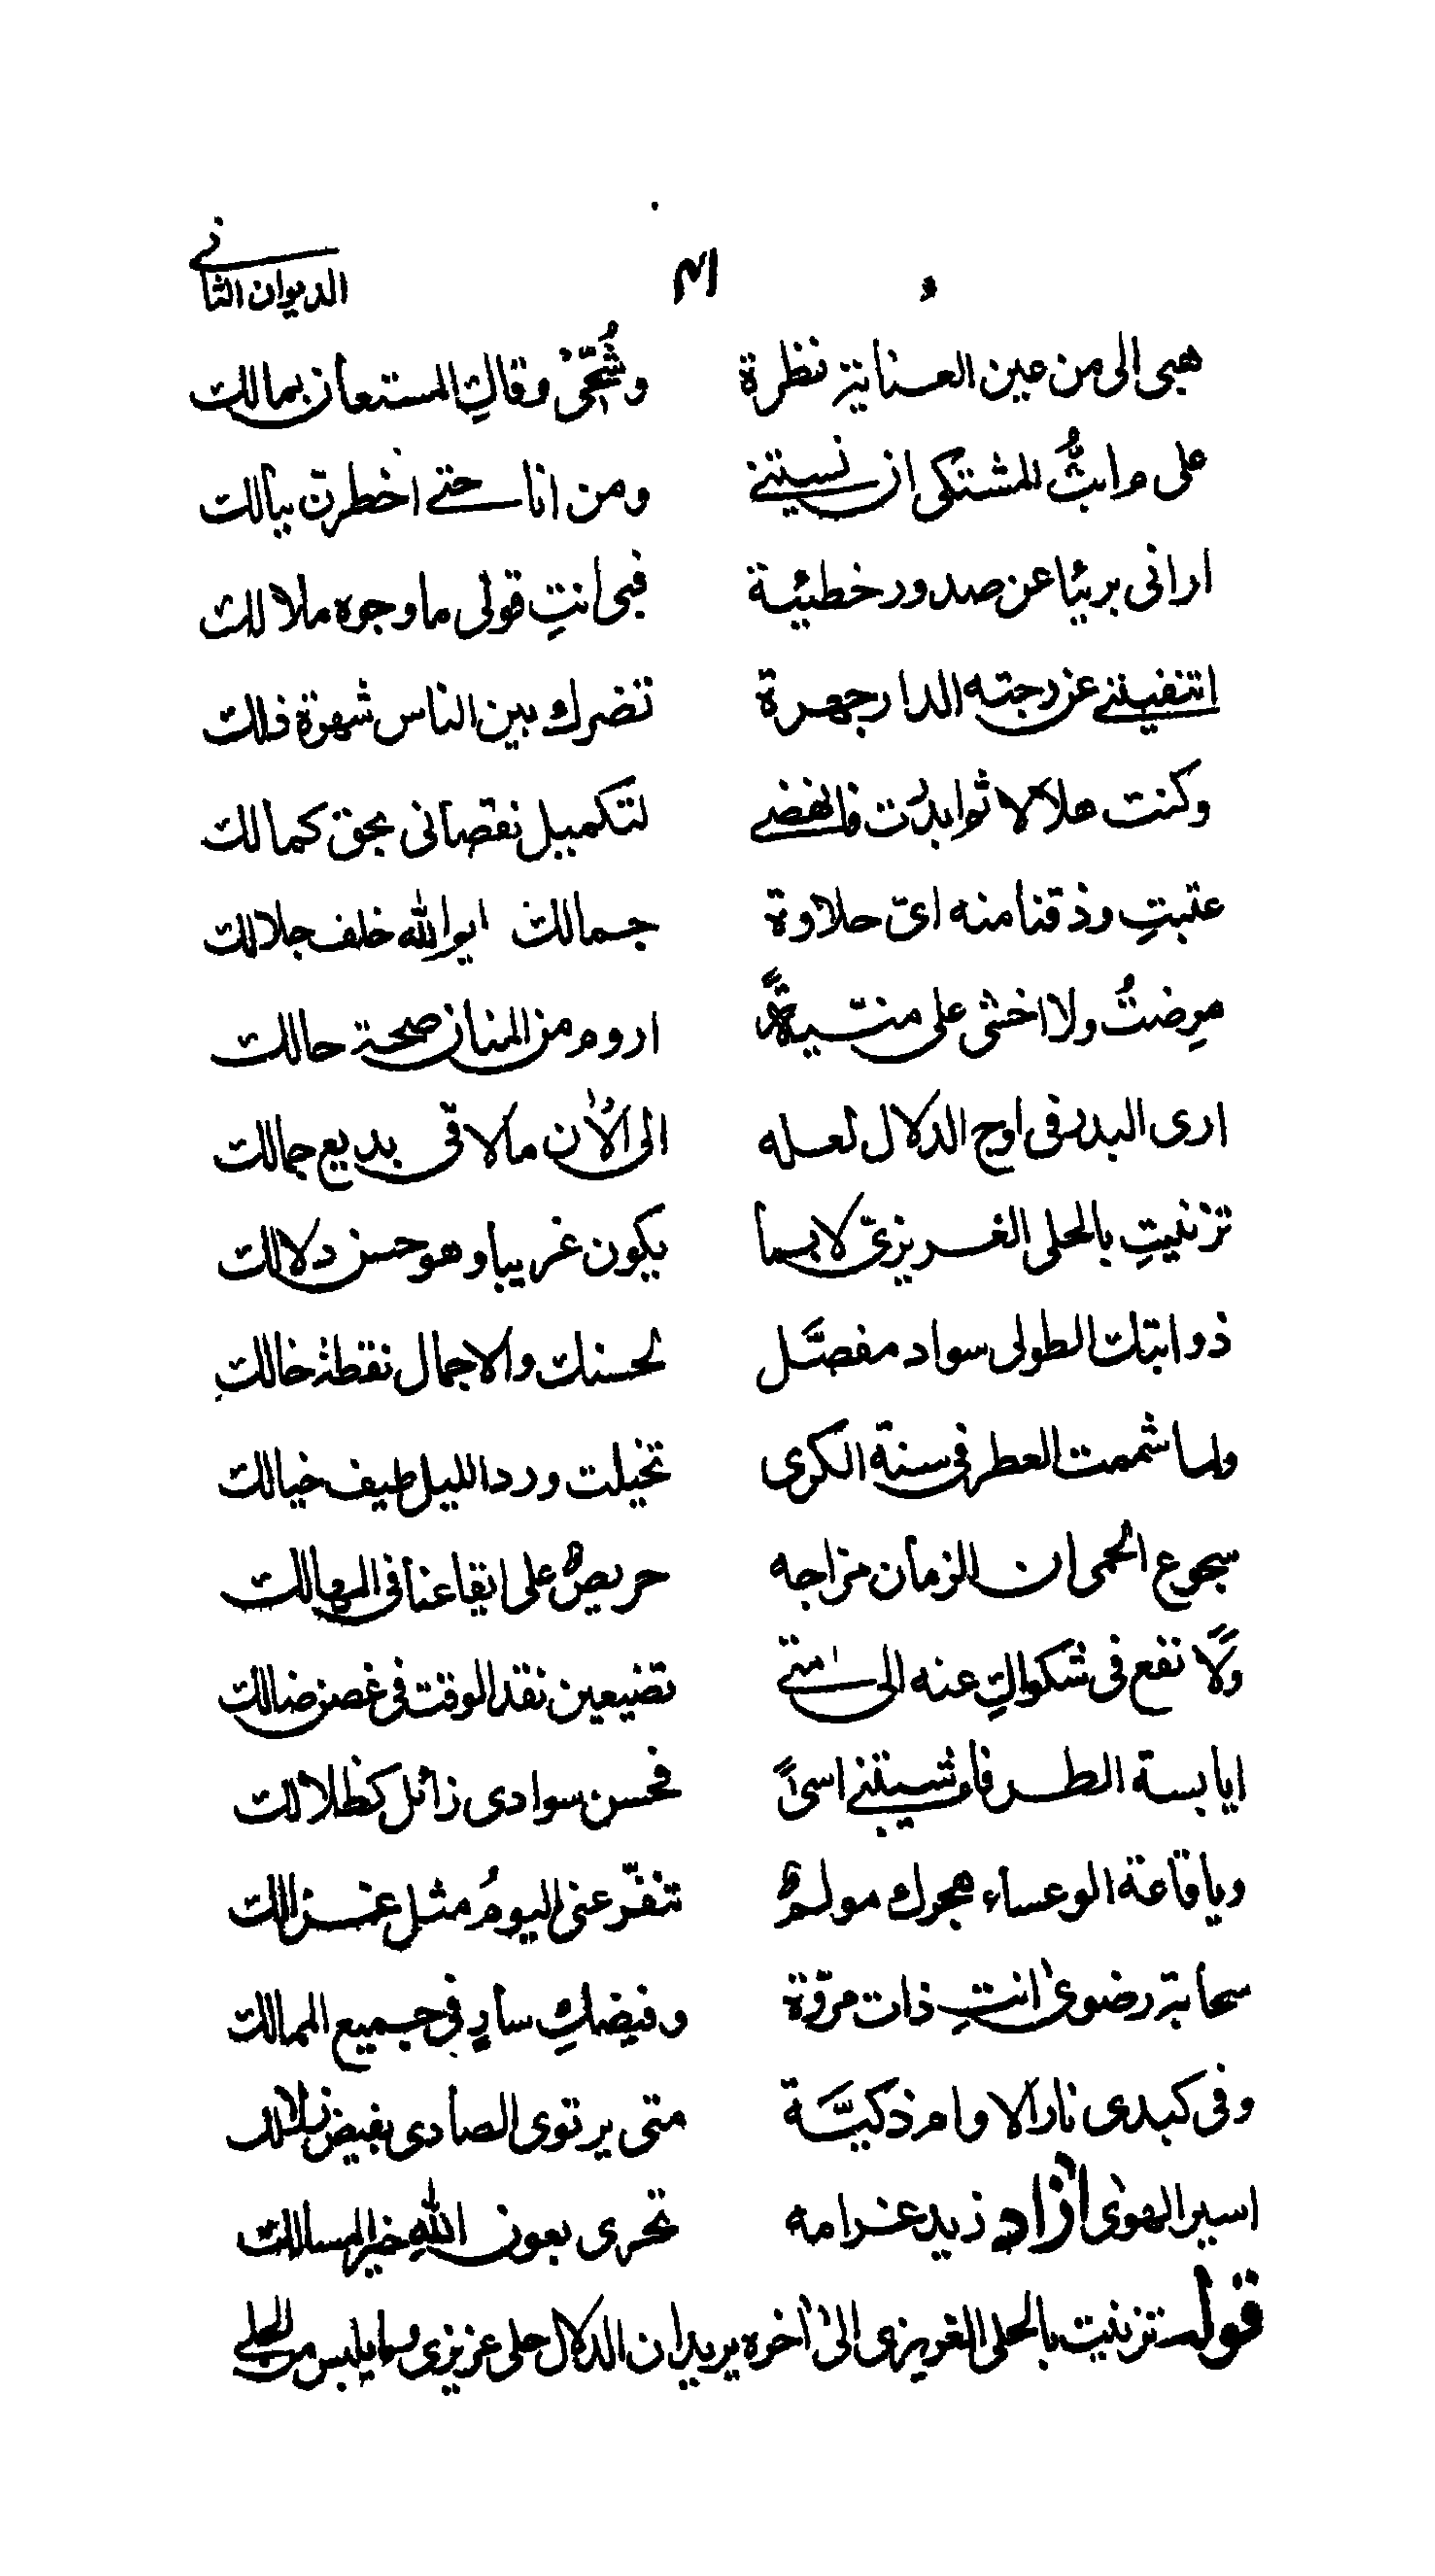 الديوان الثانى
هبى الى من عين العناية نظرة وشُحّى وقاكِ المستعان بمالك
على م ابثُّ المشتكى ان نسيتنى ومن انا حتى اخطرن ببالك
ارانى بريئا عن صدور خطيئة فبى انتِ قولى ما وجوه ملالك
اتنفيننى عن رجته الدار جهرة تضرك بين الناس شهرة ذلك
وكنت هلالا ثم ابدرت فانهضى لتكميل نقصانى بحق كمالك
عتبتِ وذقنا منه اىّ حلاوة جمالك ايو الله خلف جلالك
مرضتُ ولا اخشى على منيّة اروم من المنان صحة حالك
ارى البدر فى اوج الدلال لعله الى الآن ما لاقى بديع جمالك
تزينتِ بالحلى الغريزىّ لابسا يكون غريبا وهو حسن دلالك
ذوائبك الطولى سواد مفصَّل لحسنك والاجمال نقطة خالك
ولما شممت العطر فى سنة الكرى تخيلت ورد الليل طيف خيالك
سجوع الحمى ان الزمان مزاجه حريصٌ على ايقاعنا فى المهالك
ولا نفع فى شكواكِ عنه الى متى تضيعين نقد الوقت فى غصن ضالك
ايا بسة الطرفاء شيبتنى اسىً فحسن سوادى زائل كظلالك
ويا قاعة الوعساء هجرك مولمٌ تنفّر عنى اليومُ مثل غزالك
سحابة رضوى انتِ ذات مروّة وفيضكِ سارٍ فى جميع الممالك
وفى كبدى نار الاوام ذكيَّة متى يرتوى الصادى بفيض زلالك
اسير الهوى آزاد زيد غرامه تحرى بعون اللهِ خير المسالك
قوله تزينت بالحلى الغريزى الى آخره يريد ان الدلال حلى عزيزى وما يلبس من الحلى